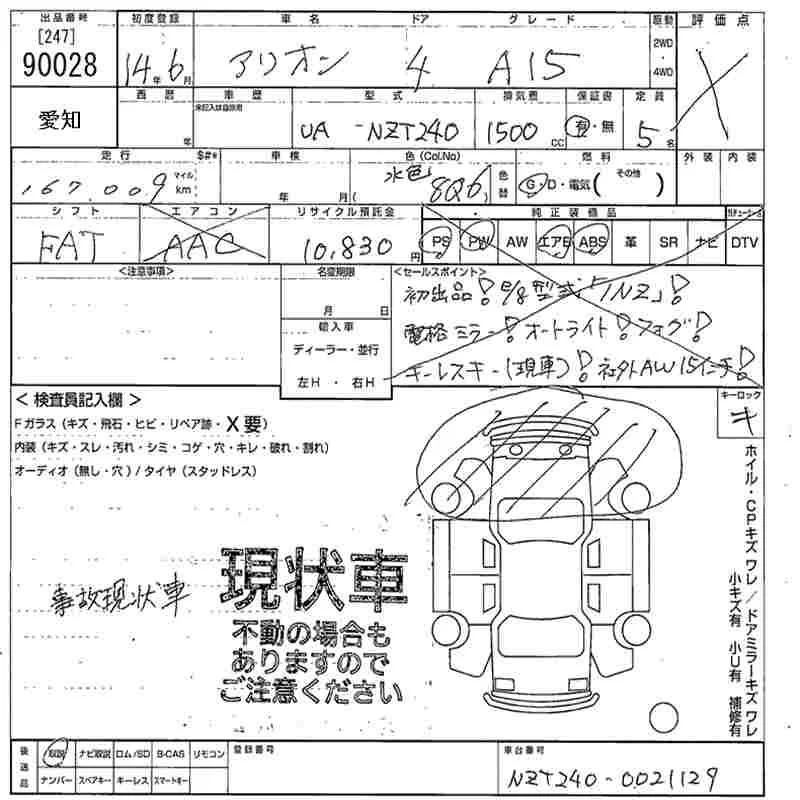 出品番号 初度登録 車名 ドア グレード 駆動 評価点
[247]
90028 14年6月 アリオン 4 A15 2WD・4WD X
愛知 西暦 年 車歴 未記入は自家用 型式 排気量 保証書 定員
UA - NZT240 1500cc 有・無 5名
走行 $#* 車検 色(Col.No) 燃料 外装 内装
167,009 マイル km 年 月( 水色 8Q6 色替 G・D・電気( その他 )
シフト エアコン リサイクル預託金 純正装備品
FAT AAC 10,830円 PS PW AW エアB ABS 革 SR ナビ DTV
<注意事項> 名変期限 <セールスポイント>
月 日
輸入車
ディーラー・並行
左H ・ 右H
初出品! E/g型式「1NZ」!
電格ミラー! オートライト! フォグ!
キーレスキー(現車)! 社外AW15インチ!
< 検査員記入欄 > キーロック
Fガラス(キズ・飛石・ヒビ・リペア跡・X要) キ
内装(キズ・スレ・汚れ・シミ・コゲ・穴・キレ・破れ・割れ)
オーディオ(無し・穴)/タイヤ(スタッドレス)
ホイル・CPキズ ワレ/ドアミラーキズ ワレ
小キズ有 小U有 補修有
事故現状車
現状車
不動の場合も
ありますので
ご注意ください
後送品 取説 ナビ取説 ロム/SD B-CAS リモコン 登録番号 車台番号
ナンバー スペアキー キーレス スマートキー NZT240-0021129